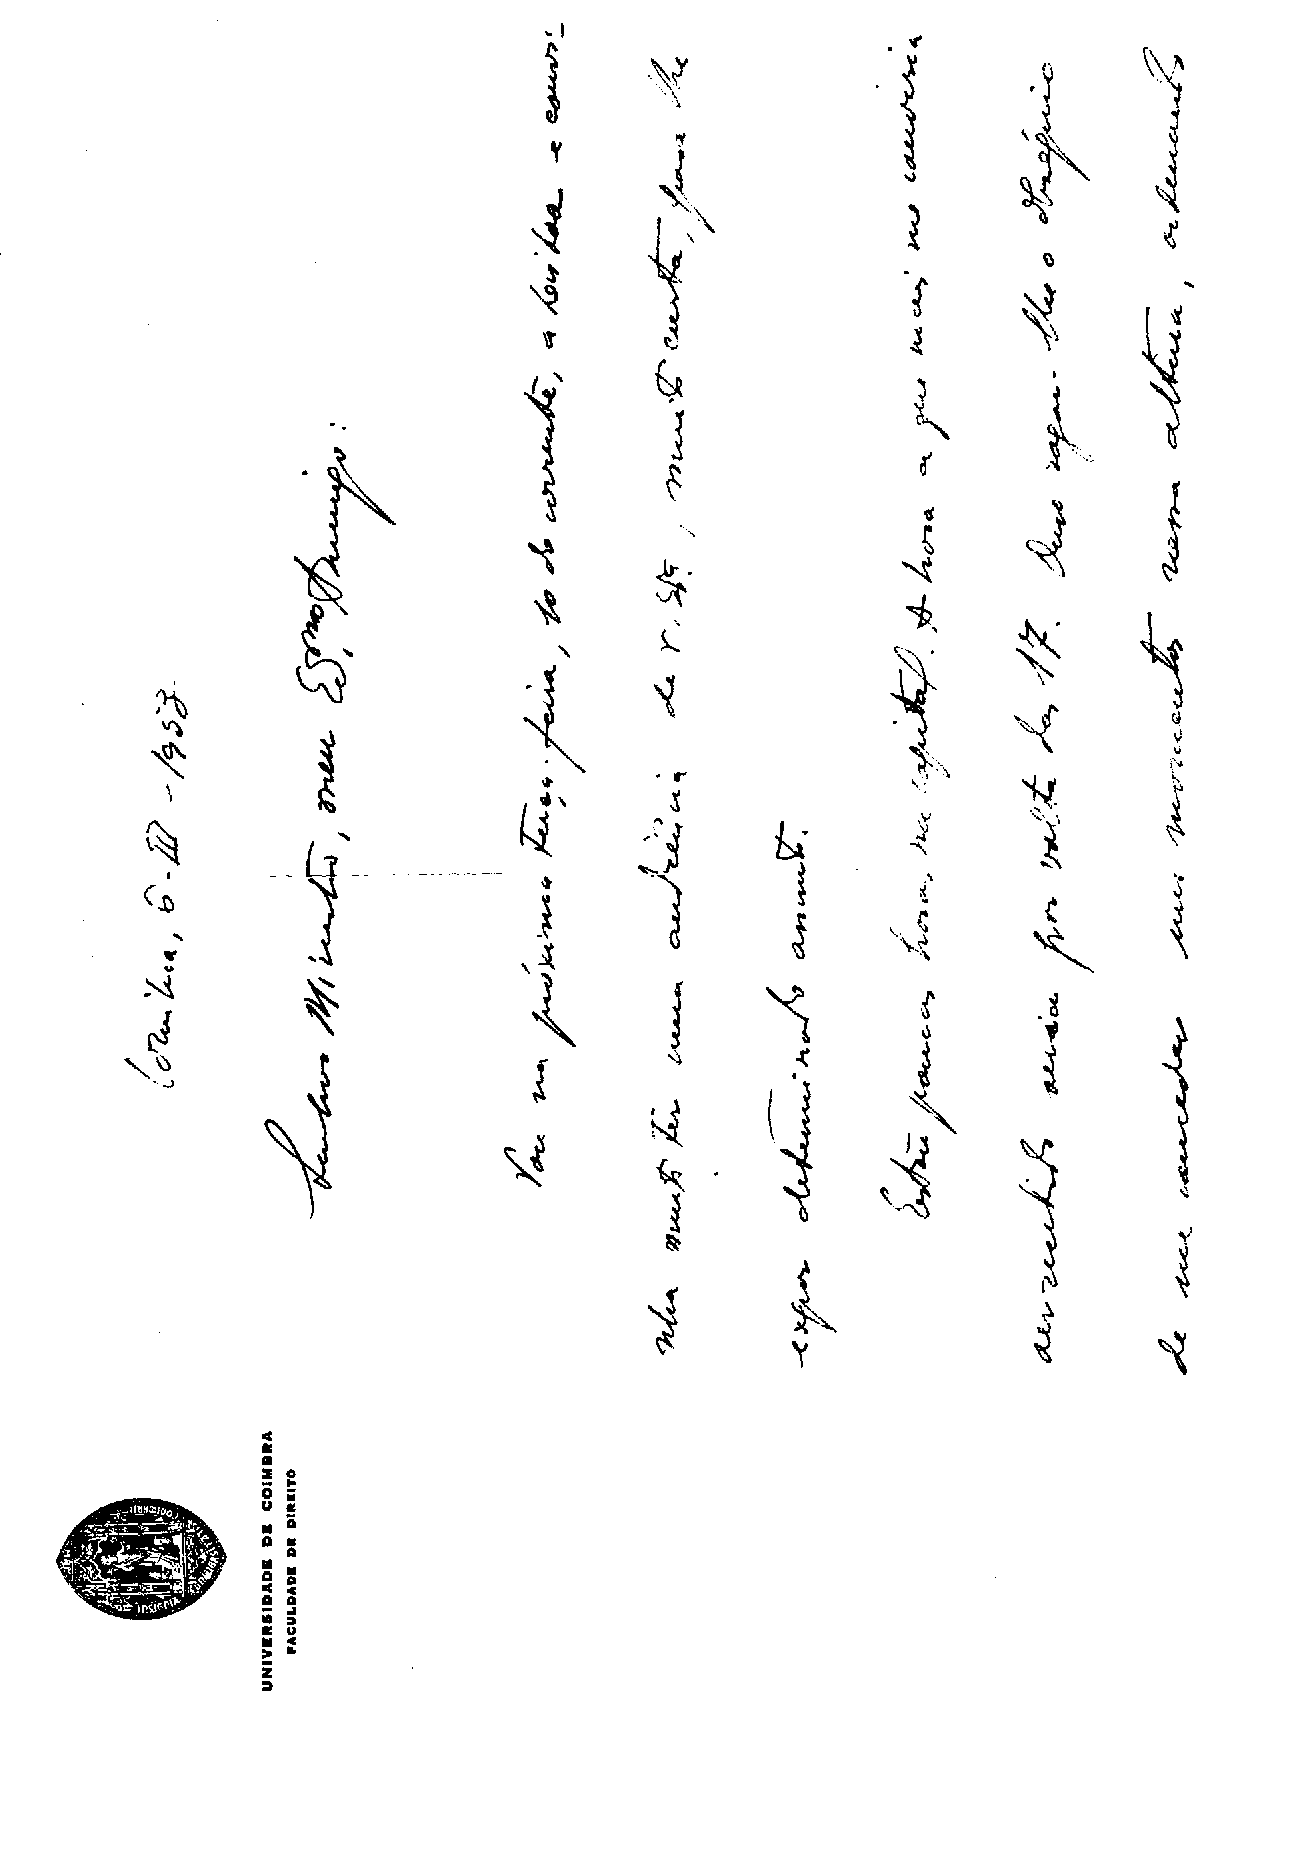 UNIVERSIDADE DE COIMBRA
FACULDADE DE DIREITO
Coimbra, 6-III-1953.
Senhor Ministro, meu Exmo Amigo:
Vou na próxima terça-feira, 10 do corrente, a Lisboa e convi-
nha muito ter uma audiência de V. Exª., muito curta, para lhe
expor determinado assunto.
Estou poucas horas na capital. A hora a que mais me convinha
ser recebido seria por volta das 17. Ouso rogar-lhe o obséquio
de me conceder uns momentos nessa altura,